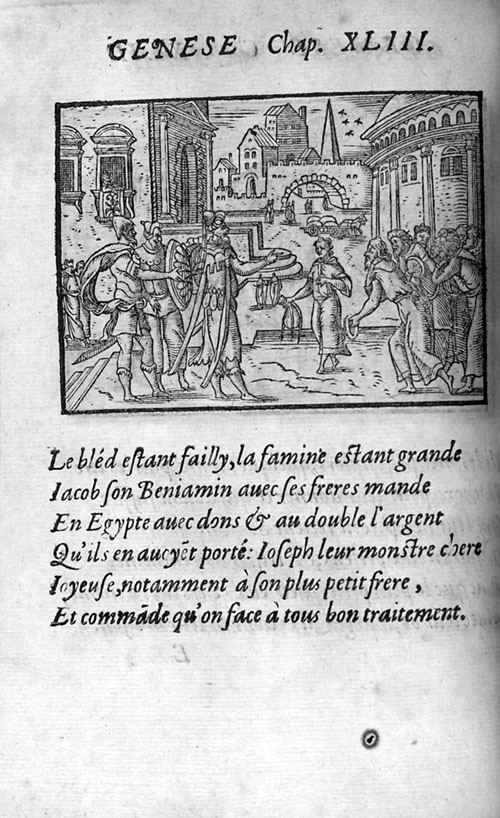 GENESE, Chap. XLIII.
Le bléd estant failly, la famine estant grande
Iacob son Beniamin auec ses freres mande
En Egypte auec dons & au double l'argent
Qu'ils en auoyẽt porté: Ioseph leur monstre chere
Ioyeuse, notamment à son plus petit frere,
Et commãde qu'on face à tous bon traitement.